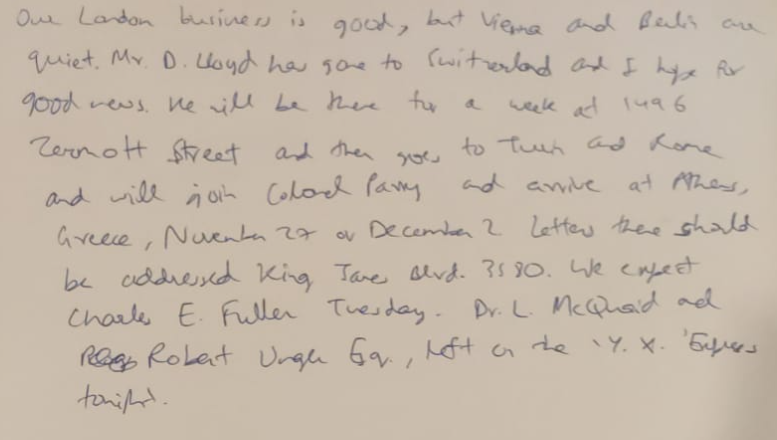 Our London business is good, but Vienna and Berlin are
quiet. Mr. D. Lloyd has gone to Switzerland and I hope for
good news. He will be there for a week at 1496
Zermott Street and then goes to Turin and Rome
and will join Colonel Parry and arrive at Athens,
Greece, November 27 or December 2 Letters there should
be addressed King James Blvd. 3580. We expect
Charles E. Fuller Tuesday. Dr. L. McQuaid and
Robert Unger Esq., left on the 'Y. X. Express
tonight.